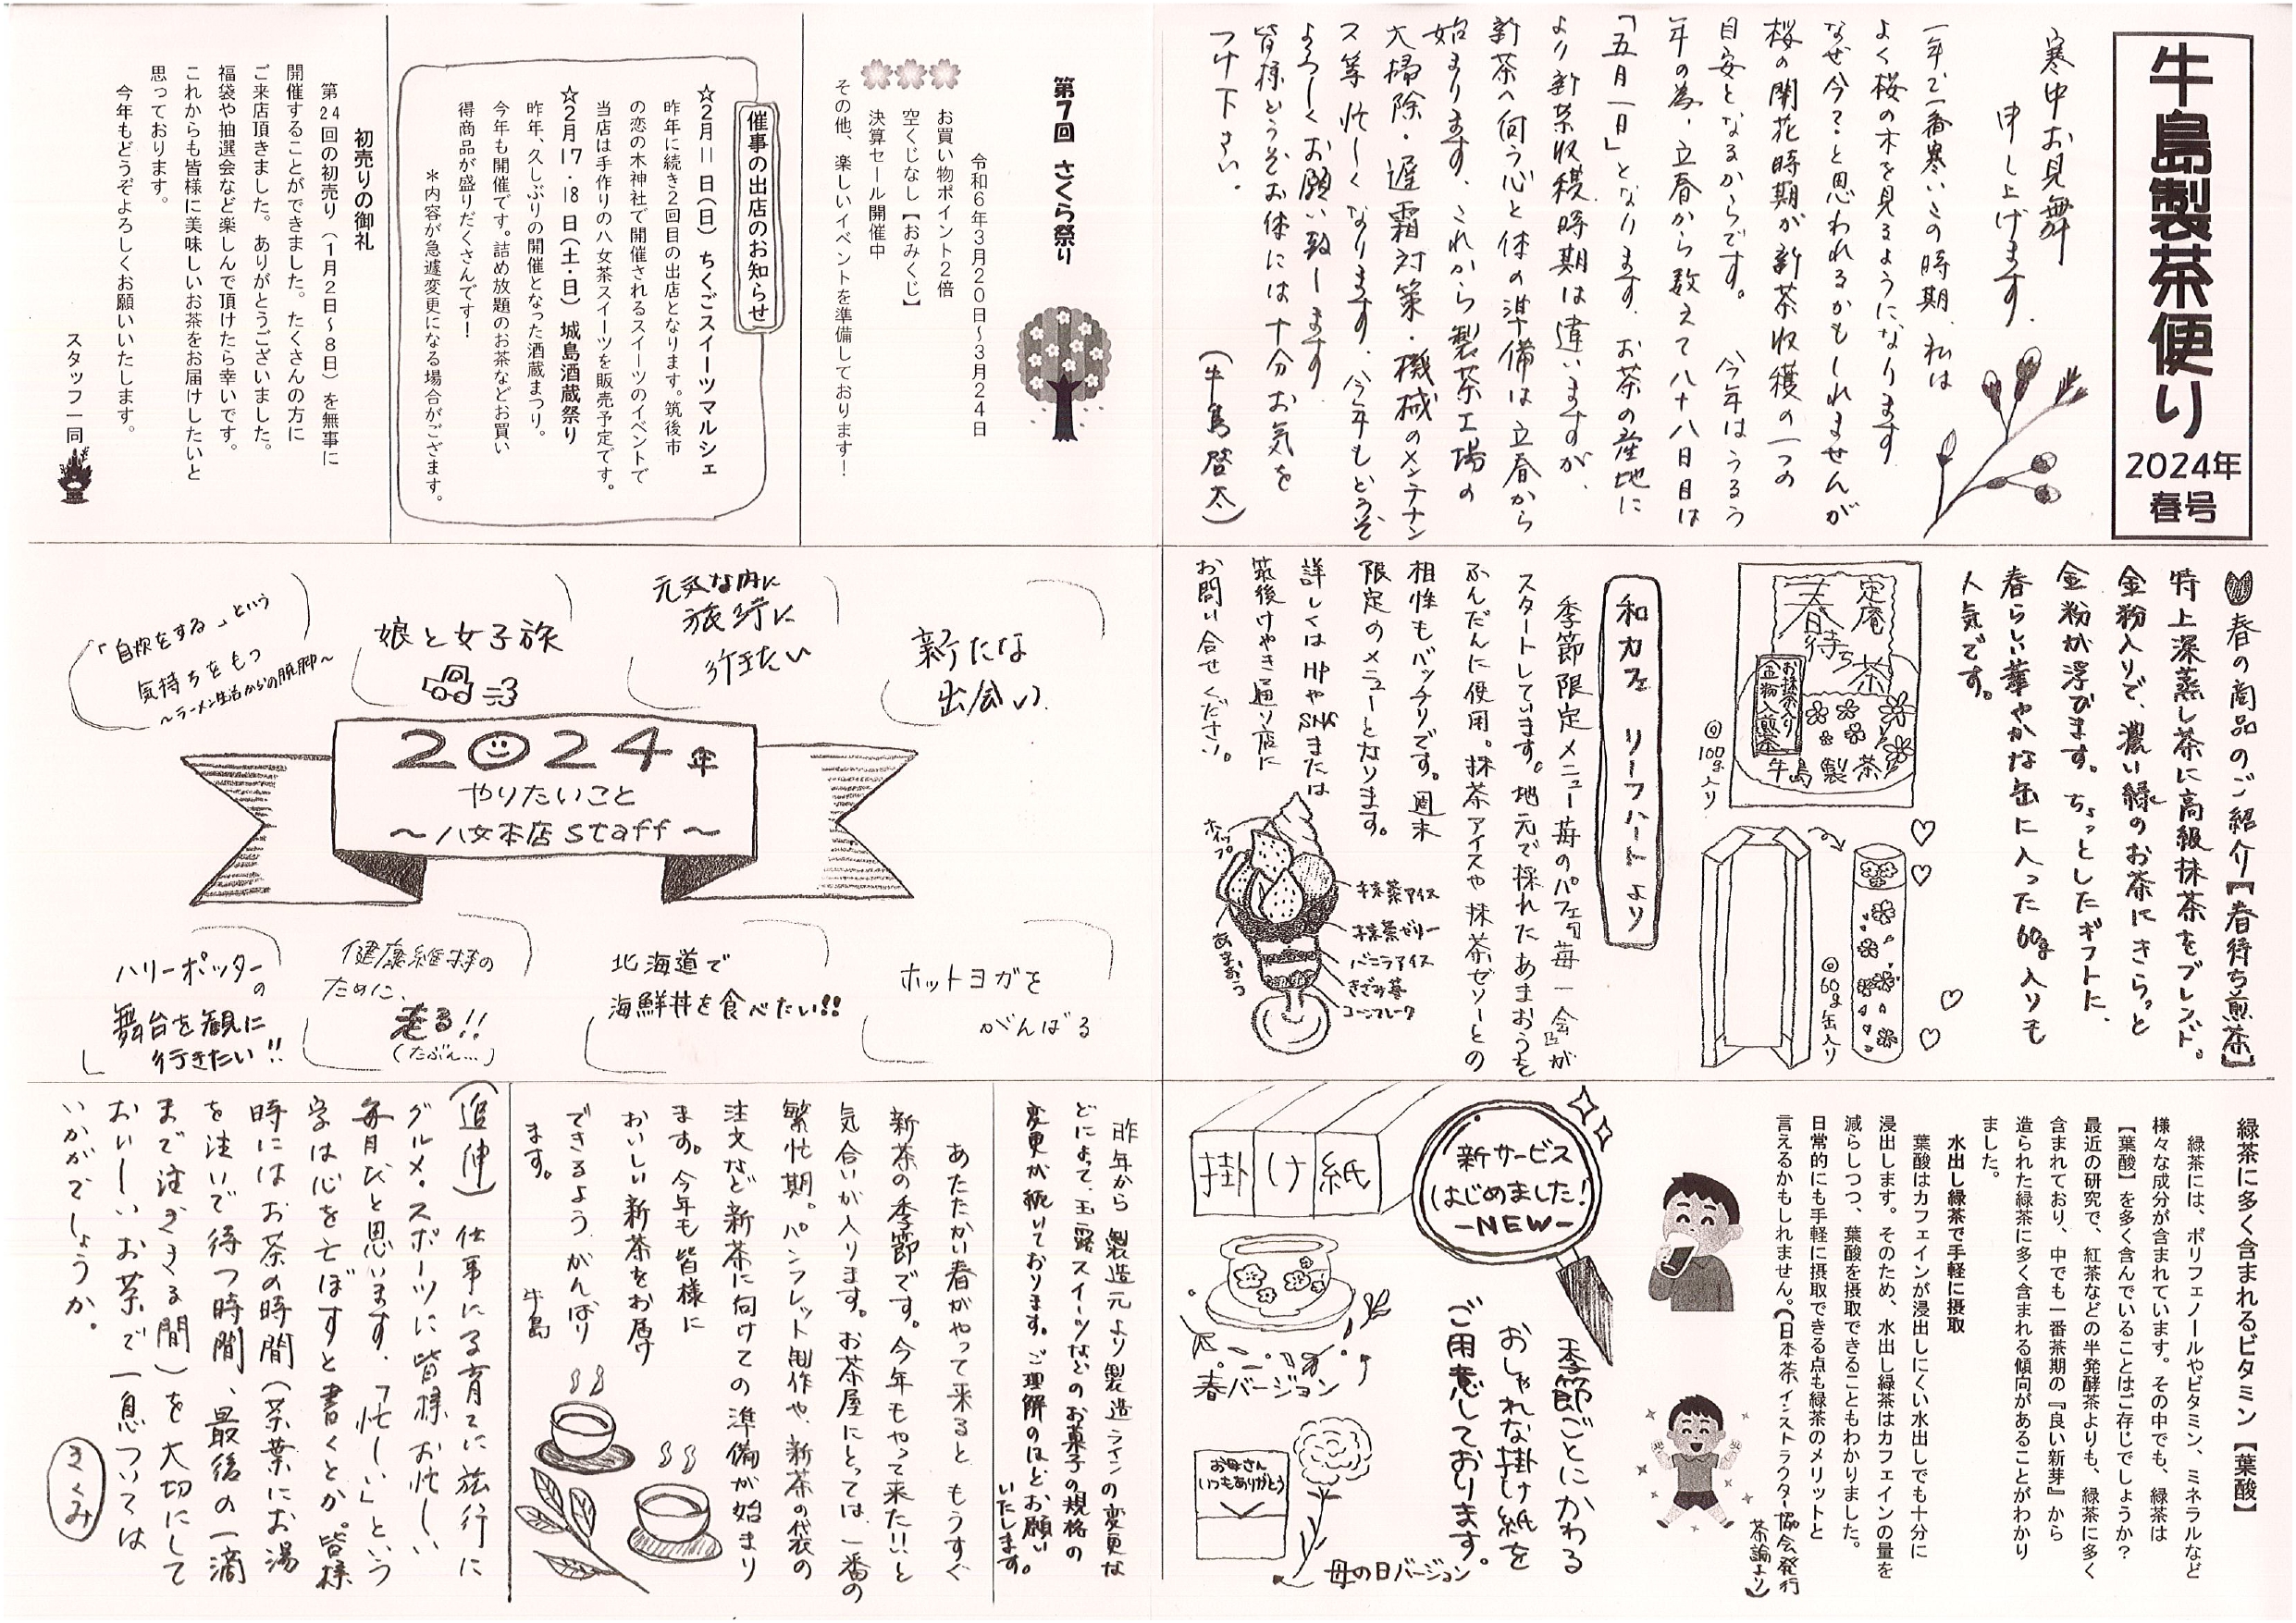 牛島製茶便り
2024年
春号
寒中お見舞
申し上げます。
一年で一番寒いこの時期、私は
よく桜の木を見るようになります
なぜ今？と思われるかもしれませんが
桜の開花時期が新茶収穫の一つの
目安となるからです。 今年はうるう
年の為、立春から数えて八十八日目は
「五月一日」となります。お茶の産地に
より新茶収穫時期は違いますが、
新茶へ向う心と体の準備は立春から
始まります。これから製茶工場の
大掃除・遅霜対策・機械のメンテナン
ス等忙しくなります。今年もどうぞ
よろしくお願い致します
皆様どうぞお体には十分お気を
つけ下さい。
（牛島啓太）
第7回 さくら祭り
令和6年3月20日～3月24日
お買い物ポイント2倍
空くじなし【おみくじ】
決算セール開催中
その他、楽しいイベントを準備しております！
催事の出店のお知らせ
☆2月11日（日） ちくごスイーツマルシェ
昨年に続き2回目の出店となります。筑後市
の恋の木神社で開催されるスイーツのイベントで
当店は手作りの八女茶スイーツを販売予定です。
☆2月17・18日（土・日） 城島酒蔵祭り
昨年、久しぶりの開催となった酒蔵まつり。
今年も開催です。詰め放題のお茶などお買い
得商品が盛りだくさんです！
＊内容が急遽変更になる場合がございます。
初売りの御礼
第24回の初売り（1月2日～8日）を無事に
開催することができました。たくさんの方に
ご来店頂きました。ありがとうございました。
福袋や抽選会など楽しんで頂けたら幸いです。
これからも皆様に美味しいお茶をお届けしたいと
思っております。
今年もどうぞよろしくお願いいたします。
スタッフ一同
春の商品のご紹介【春待ち煎茶】
特上深蒸し茶に高級抹茶をブレンド。
金粉入りで、濃い緑のお茶にきらっと
金粉が浮びます。ちょっとしたギフトに、
春らしい華やかな缶に入った60g入りも
人気です。
定庵
春待ち茶
お抹茶入り
金粉入煎茶
牛島製茶
◎100g入り
◎60g缶入り
和カフェ リーフハートより
季節限定メニュー苺のパフェ『苺一会』が
スタートしています。地元で採れたあまおうを
ふんだんに使用。抹茶アイスや抹茶ゼリーとの
相性もバッチリです。週末
限定のメニューとなります。
詳しくはHPやSNSまたは
筑後けやき通り店に
お問い合せください。
ホイップ
あまおう
抹茶アイス
抹茶ゼリー
バニラアイス
きざみ苺
コーンフレーク
新たな
出会い
元気な内に
旅行に
行きたい
娘と女子旅
「自炊をする」という
気持ちをもつ
～ラーメン生活からの脱却～
2024年
やりたいこと
～八女本店staff～
ホットヨガを
がんばる
北海道で
海鮮丼を食べたい!!
健康維持の
ために、
走る!!
（たぶん…）
ハリーポッターの
舞台を観に
行きたい!!
緑茶に多く含まれるビタミン【葉酸】
緑茶には、ポリフェノールやビタミン、ミネラルなど
様々な成分が含まれています。その中でも、緑茶は
【葉酸】を多く含んでいることはご存じでしょうか？
最近の研究で、紅茶などの半発酵茶よりも、緑茶に多く
含まれており、中でも一番茶期の『良い新芽』から
造られた緑茶に多く含まれる傾向があることがわかり
ました。
水出し緑茶で手軽に摂取
葉酸はカフェインが浸出しにくい水出しでも十分に
浸出します。そのため、水出し緑茶はカフェインの量を
減らしつつ、葉酸を摂取できることもわかりました。
日常的にも手軽に摂取できる点も緑茶のメリットと
言えるかもしれません。（日本茶インストラクター協会発行
茶論より）
新サービス
はじめました！
-NEW-
掛け紙
季節ごとにかわる
おしゃれな掛け紙を
ご用意しております。
春バージョン
お母さん
いつもありがとう
母の日バージョン
昨年から製造元より製造ラインの変更な
どによって、玉露スイーツなどのお菓子の規格の
変更が続いております。ご理解のほどお願い
いたします。
あたたかい春がやって来ると、もうすぐ
新茶の季節です。今年もやって来た!!と
気合いが入ります。お茶屋にとっては一番の
繁忙期。パンフレット制作や、新茶の袋の
注文など新茶に向けての準備が始まり
ます。今年も皆様に
おいしい新茶をお届け
できるよう、がんばり
ます。
牛島
（追伸）仕事に子育てに旅行に
グルメ・スポーツに皆様お忙しい
毎日だと思います。「忙しい」という
字は心を亡ぼすと書くとか。皆様
時にはお茶の時間（茶葉にお湯
を注いで待つ時間、最後の一滴
まで注ぎきる間）を大切にして
おいしいお茶で一息ついては
いかがでしょうか。
きくみ